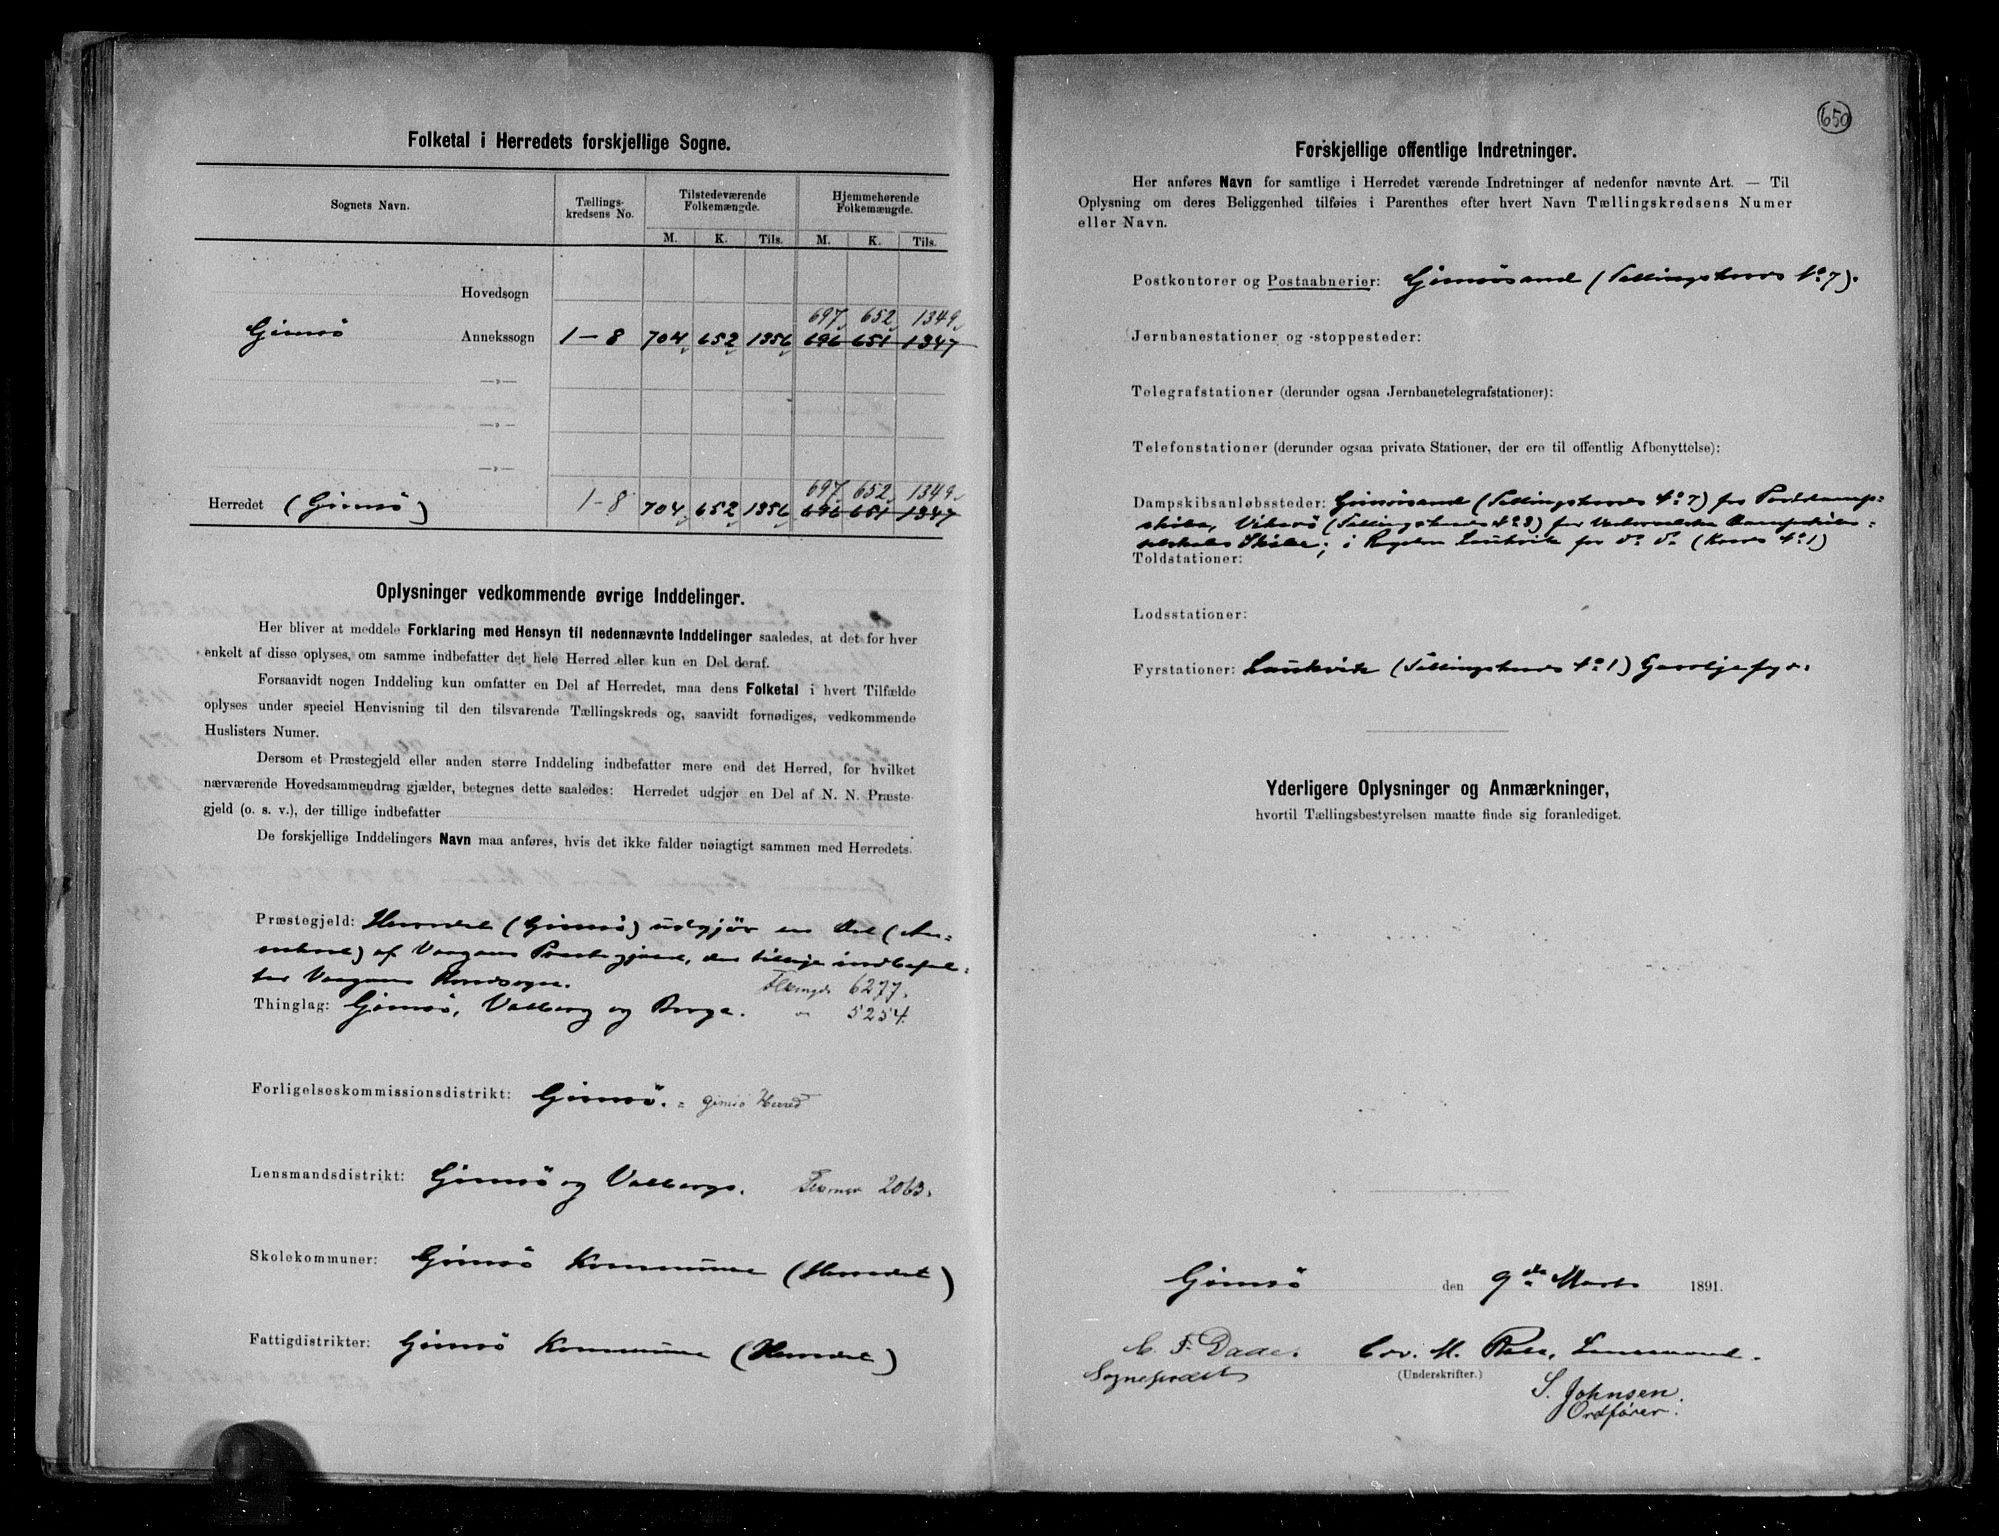 Folketal i Herredets forskjellige Sogne.
Sognets Navn. Tællingskredsens No. Tilstedeværende Folkemængde. Hjemmehørende Folkemængde.
M. K. Tils. M. K. Tils.
Hovedsogn
697 652 1349
Gimsö Annekssogn 1-8 704 652 1356 696 651 1347
—„—
—„—
—„—
697 652 1349
Herredet (Gimsö) 1-8 704 652 1356 696 651 1347
Oplysninger vedkommende øvrige Inddelinger.
Her bliver at meddele Forklaring med Hensyn til nedennævnte Inddelinger saaledes, at det for hver
enkelt af disse oplyses, om samme indbefatter det hele Herred eller kun en Del deraf.
Forsaavidt nogen Inddeling kun omfatter en Del af Herredet, maa dens Folketal i hvert Tilfælde
oplyses under speciel Henvisning til den tilsvarende Tællingskreds og, saavidt fornødiges, vedkommende
Huslisters Numer.
Dersom et Præstegjeld eller anden større Inddeling indbefatter mere end det Herred, for hvilket
nærværende Hovedsammendrag gjælder, betegnes dette saaledes: Herredet udgjør en Del af N. N. Præste
gjeld (o. s. v.), der tillige indbefatter
De forskjellige Inddelingers Navn maa anføres, hvis det ikke falder nøiagtigt sammen med Herredets.
Præstegjeld: Herredet (Gimsö) udgjör en Del (An-
nekset) af Vaagans Præstegjæld, der tillige indbefat-
ter Vaagans Hovedsogn. 6277.
Thinglag: Gimsö, Valberg og Borge. 5254.
Forligelseskommissionsdistrikt: Gimsö. = Gimsö Herred
Lensmandsdistrikt: Gimsö og Valbergs. 2063.
Skolekommuner: Gimsö Kommune (Herredet)
Fattigdistrikter: Gimsö Kommune (Herredet)
650
Forskjellige offentlige Indretninger.
Her anføres Navn for samtlige i Herredet værende Indretninger af nedenfor nævnte Art. — Til
Oplysning om deres Beliggenhed tilføies i Parenthes efter hvert Navn Tællingskredsens Numer
eller Navn.
Postkontorer og Postaabnerier: Gimsösand (Tellingskreds No 7).
Jernbanestationer og -stoppesteder:
Telegrafstationer (derunder ogsaa Jernbanetelegrafstationer):
Telefonstationer (derunder ogsaa private Stationer, der ere til offentlig Afbenyttelse):
Dampskibsanløbssteder: Gimsösand (Tellingskreds No 7) for Postdamp-
skibe, (Tellingskreds No 3) for Dampskibs-
selskabs Skibe; i Reglen Laukvik for do do (Kreds No 1)
Toldstationer:
Lodsstationer:
Fyrstationer: Laukvik (Tellingskreds No 1)
Yderligere Oplysninger og Anmærkninger,
hvortil Tællingsbestyrelsen maatte finde sig foranlediget.
Gimsö den 9de Marts 1891.
C. F. Daae. M. Lensmand.
Sogneprest (Underskrifter.)
S. Johnsen.
Ordfører.